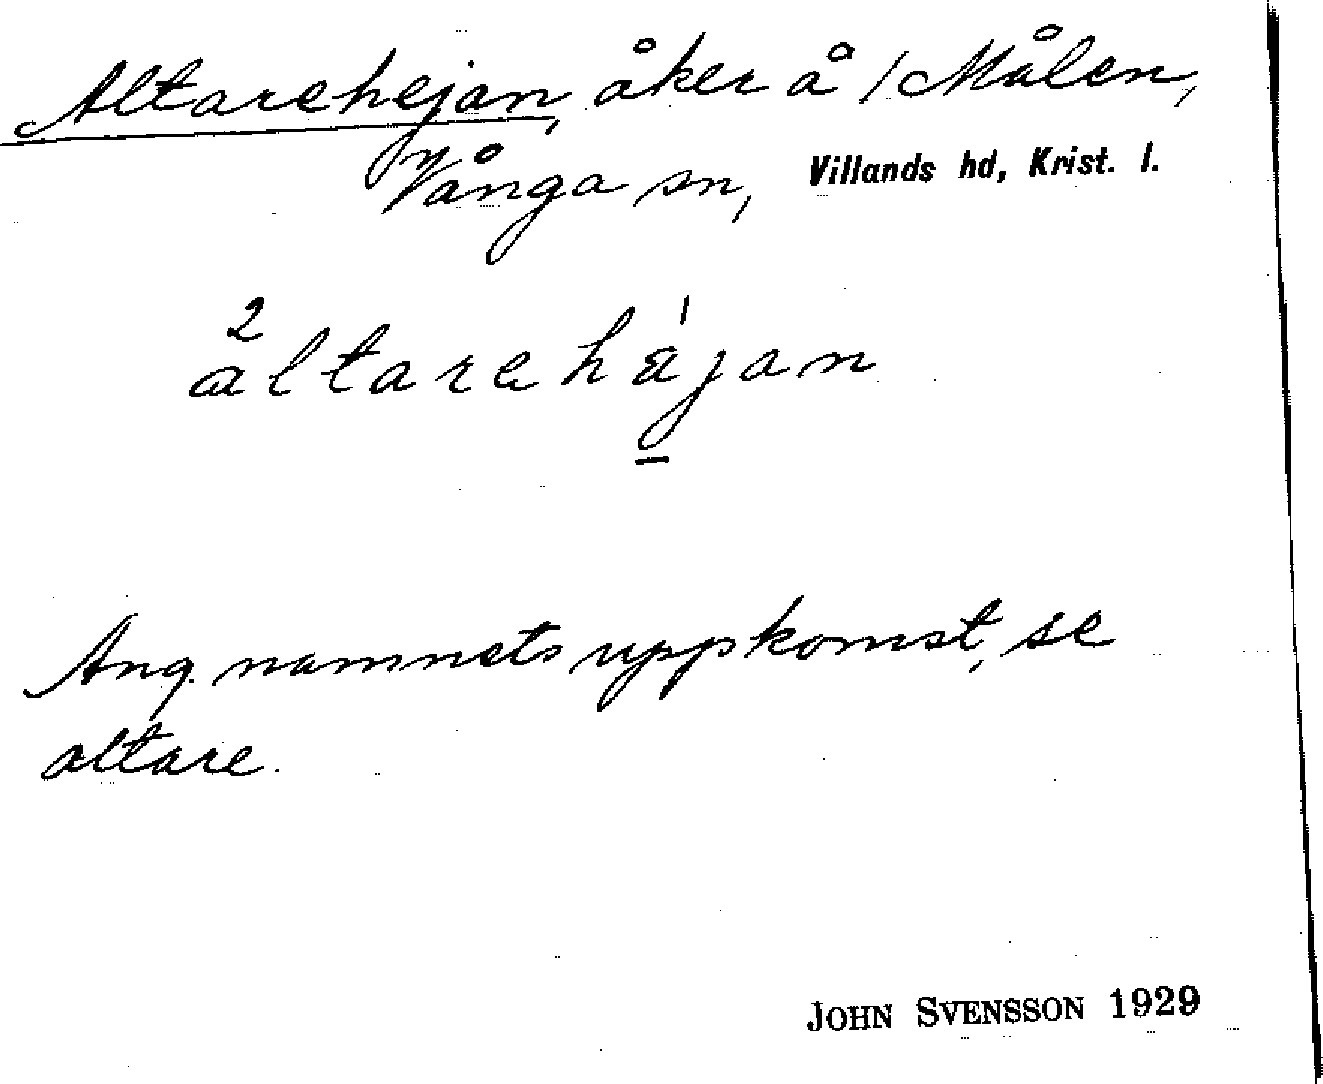 Altarehejan, åker å /Målen,
Vånga sn, Villands hd, Krist. l.
2 altarehäjan
Ang. namnets uppkomst, se
altare.
JOHN SVENSSON 1929